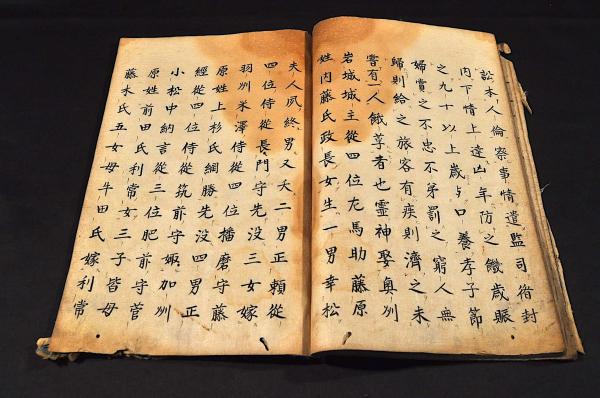 訟本人倫察事情遣監司循封
内下情上達凶年防之饑歳賑
之九十以上歳与口養孝子節
婦賞之不忠不弟罰之窮人無
歸則給之旅客有疾則濟之未
嘗有一人餓莩者也靈神娶奥州
岩城城主從四位左馬助藤原
姓内藤氏政長女生一男幸松
夫人夙終男又夭二男正頼從
四位侍從長門守先没三女嫁
羽州米澤侍從四位播磨守藤
原姓上杉氏綱勝先没四男正
經從四位侍從筑前守娵加州
小松中納言從三位肥前守菅
原姓前田氏利常女三子皆母
藤木氏五女母牛田氏嫁利常